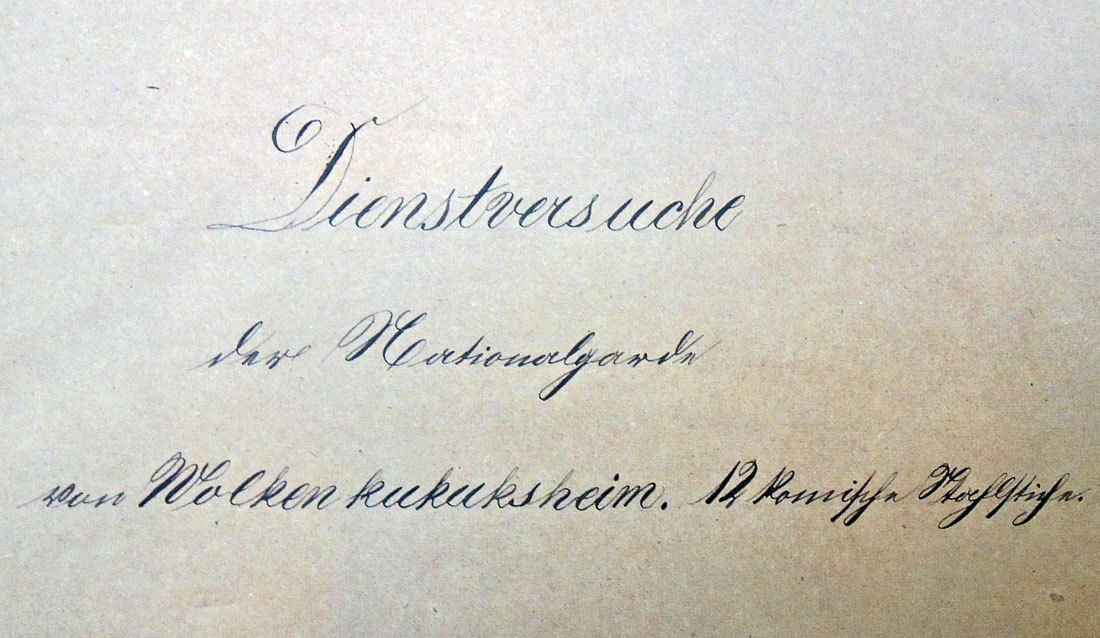 Dienstversuche
der Nationalgarde
von Wolkenkukuksheim. 12 komische Stahlstiche.